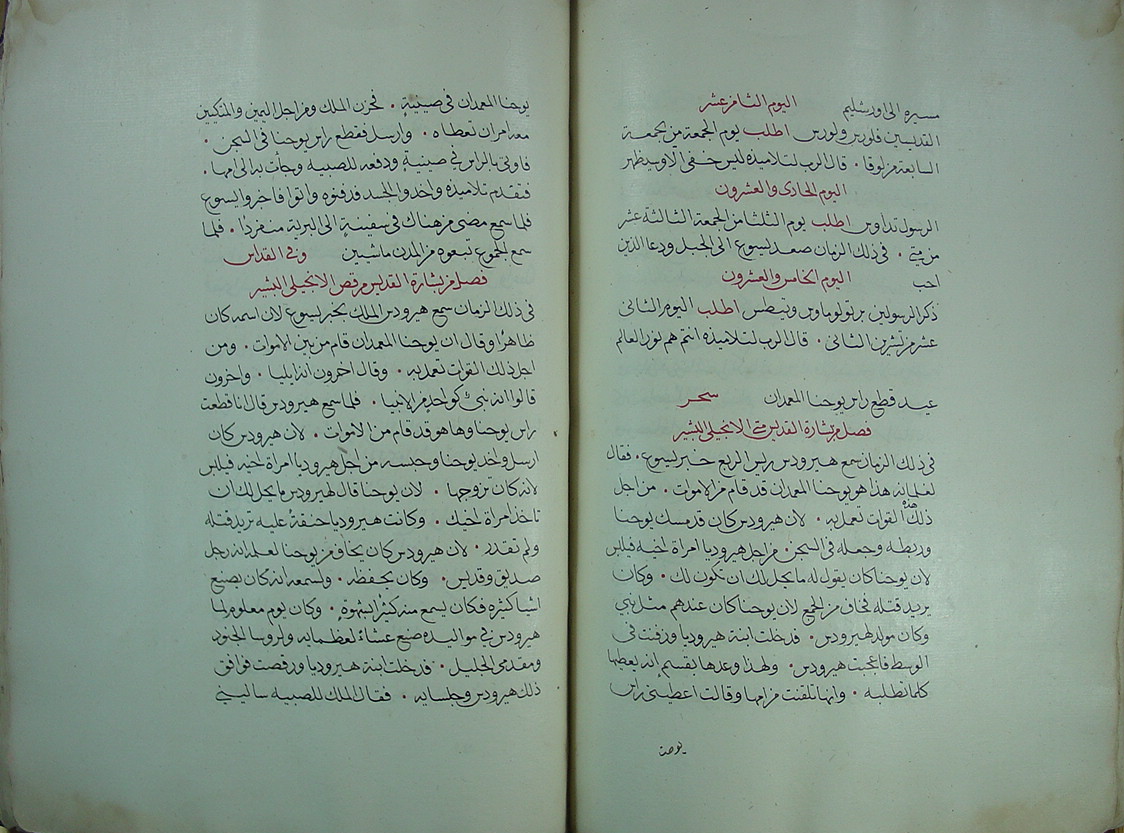 مسيره الى اورشليم اليوم الثامن عشر
القديسين فلورس ولورس اطلب يوم الجمعة من الجمعة
السابعة من لوقا • قال الرب لتلاميذه ليس خفي الا وسيظهر
اليوم الحادي والعشرون
الرسول تداوس اطلب يوم الثلثا من الجمعة الثالثة عشر
من متى • في ذلك الزمان صعد يسوع الى الجبل ودعا الذين
احب اليوم الخامس والعشرون
ذكر الرسولين برتولوماوس وتيطس اطلب اليوم الثاني
عشر من تشرين الثاني • قال الرب لتلاميذه انتم هم نور العالم
عيد قطع راس يوحنا المعمدان سحر
فصل من بشارة القديس متى الانجيلي البشير
في ذلك الزمان سمع هيرودس رييس الربع خبر يسوع • فقال
لغلمانه هذا هو يوحنا المعمدان قد قام من الاموات • من اجل
ذلك هذه القوات تعمل به • لان هيرودس كان قد مسك يوحنا
وربطه وجعله في السجن من اجل هيروديا امراة اخيه فيلبس
لان يوحنا كان يقول له ما يحل لك ان تكون لك • وكان
يريد قتله فخاف من الجمع لان يوحنا كان عندهم مثل نبي
وكان مولد لهيرودس • فدخلت ابنة هيروديا ورقصت في
الوسط فاعجبت هيرودس • ولهذا وعدها بقسم انه يعطيها
كلما تطلبه • وانها تلقنت من امها وقالت اعطيني راس
يوحنا
يوحنا المعمدان في صينية • فحزن الملك ومن اجل اليمين والمتكيين
معه امر ان تعطاه • وارسل فقطع راس يوحنا في السجن •
فاوتي بالراس في صينية ودفعه للصبيه وجأت به الى امها •
فتقدم تلاميذه واخذو الجسد فدفنوه واتوا فاخبروا يسوع
فلما سمع مضى من هناك في سفينة الى البرية منفردًا • فلما
سمع الجموع تبعوه من المدن ماشيين وفي القداس
فصل من بشارة القديس مرقص الانجيلي البشير
في ذلك الزمان سمع هيرودس الملك بخبر يسوع لان اسمه كان
ظاهرًا وقال ان يوحنا المعمدان قام من بين الاموات • ومن
اجل ذلك القوات تعمل به • وقال اخرون انه ايليا • واخرون
قالوا انه نبي كواحد من الانبيا • فلما سمع هيرودس قال انا قطعت
راس يوحنا وها هو قد قام من الاموات • لان هيرودس كان
ارسل واخد يوحنا وحبسه من اجل هيروديا امراة اخيه فيلبس
لانه كان تزوجها • لان يوحنا قال لهيرودس ما يحل لك ان
تاخذ امراة اخيك • وكانت هيروديا حنقة عليه تريد قتله
ولم تقدر • لان هيرودس كان يخاف من يوحنا لعلمه انه رجل
صديق وقديس • وكان يحفظه • ولسمعه انه كان يصنع
اشيا كثيره فكان يسمع منه كثيرا بشهوة • وكان يوم معلوم لما
هيرودس في مواليده صنع عشاءً لعظمايه ولروسا الجنود
ومقدمي الجليل • فدخلت ابنة هيروديا ورقصت فوافق
ذلك هيرودس وجلسايه • فقال الملك للصبيه ساليني